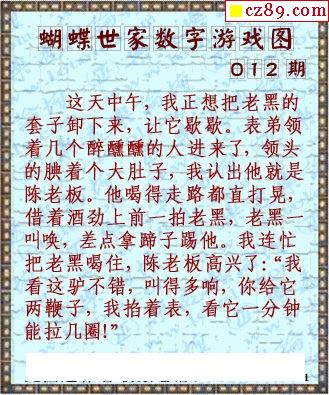 cz89.com
蝴蝶世家数字游戏图
012 期
这天中午，我正想把老黑的
套子卸下来，让它歇歇。表弟领
着几个醉醺醺的人进来了，领头
的腆着个大肚子，我认出他就是
陈老板。他喝得走路都直打晃，
借着酒劲上前一拍老黑，老黑一
叫唤，差点拿蹄子踢他。我连忙
把老黑喝住，陈老板高兴了：“我
看这驴不错，叫得多响，你给它
两鞭子，我掐着表，看它一分钟
能拉几圈！”